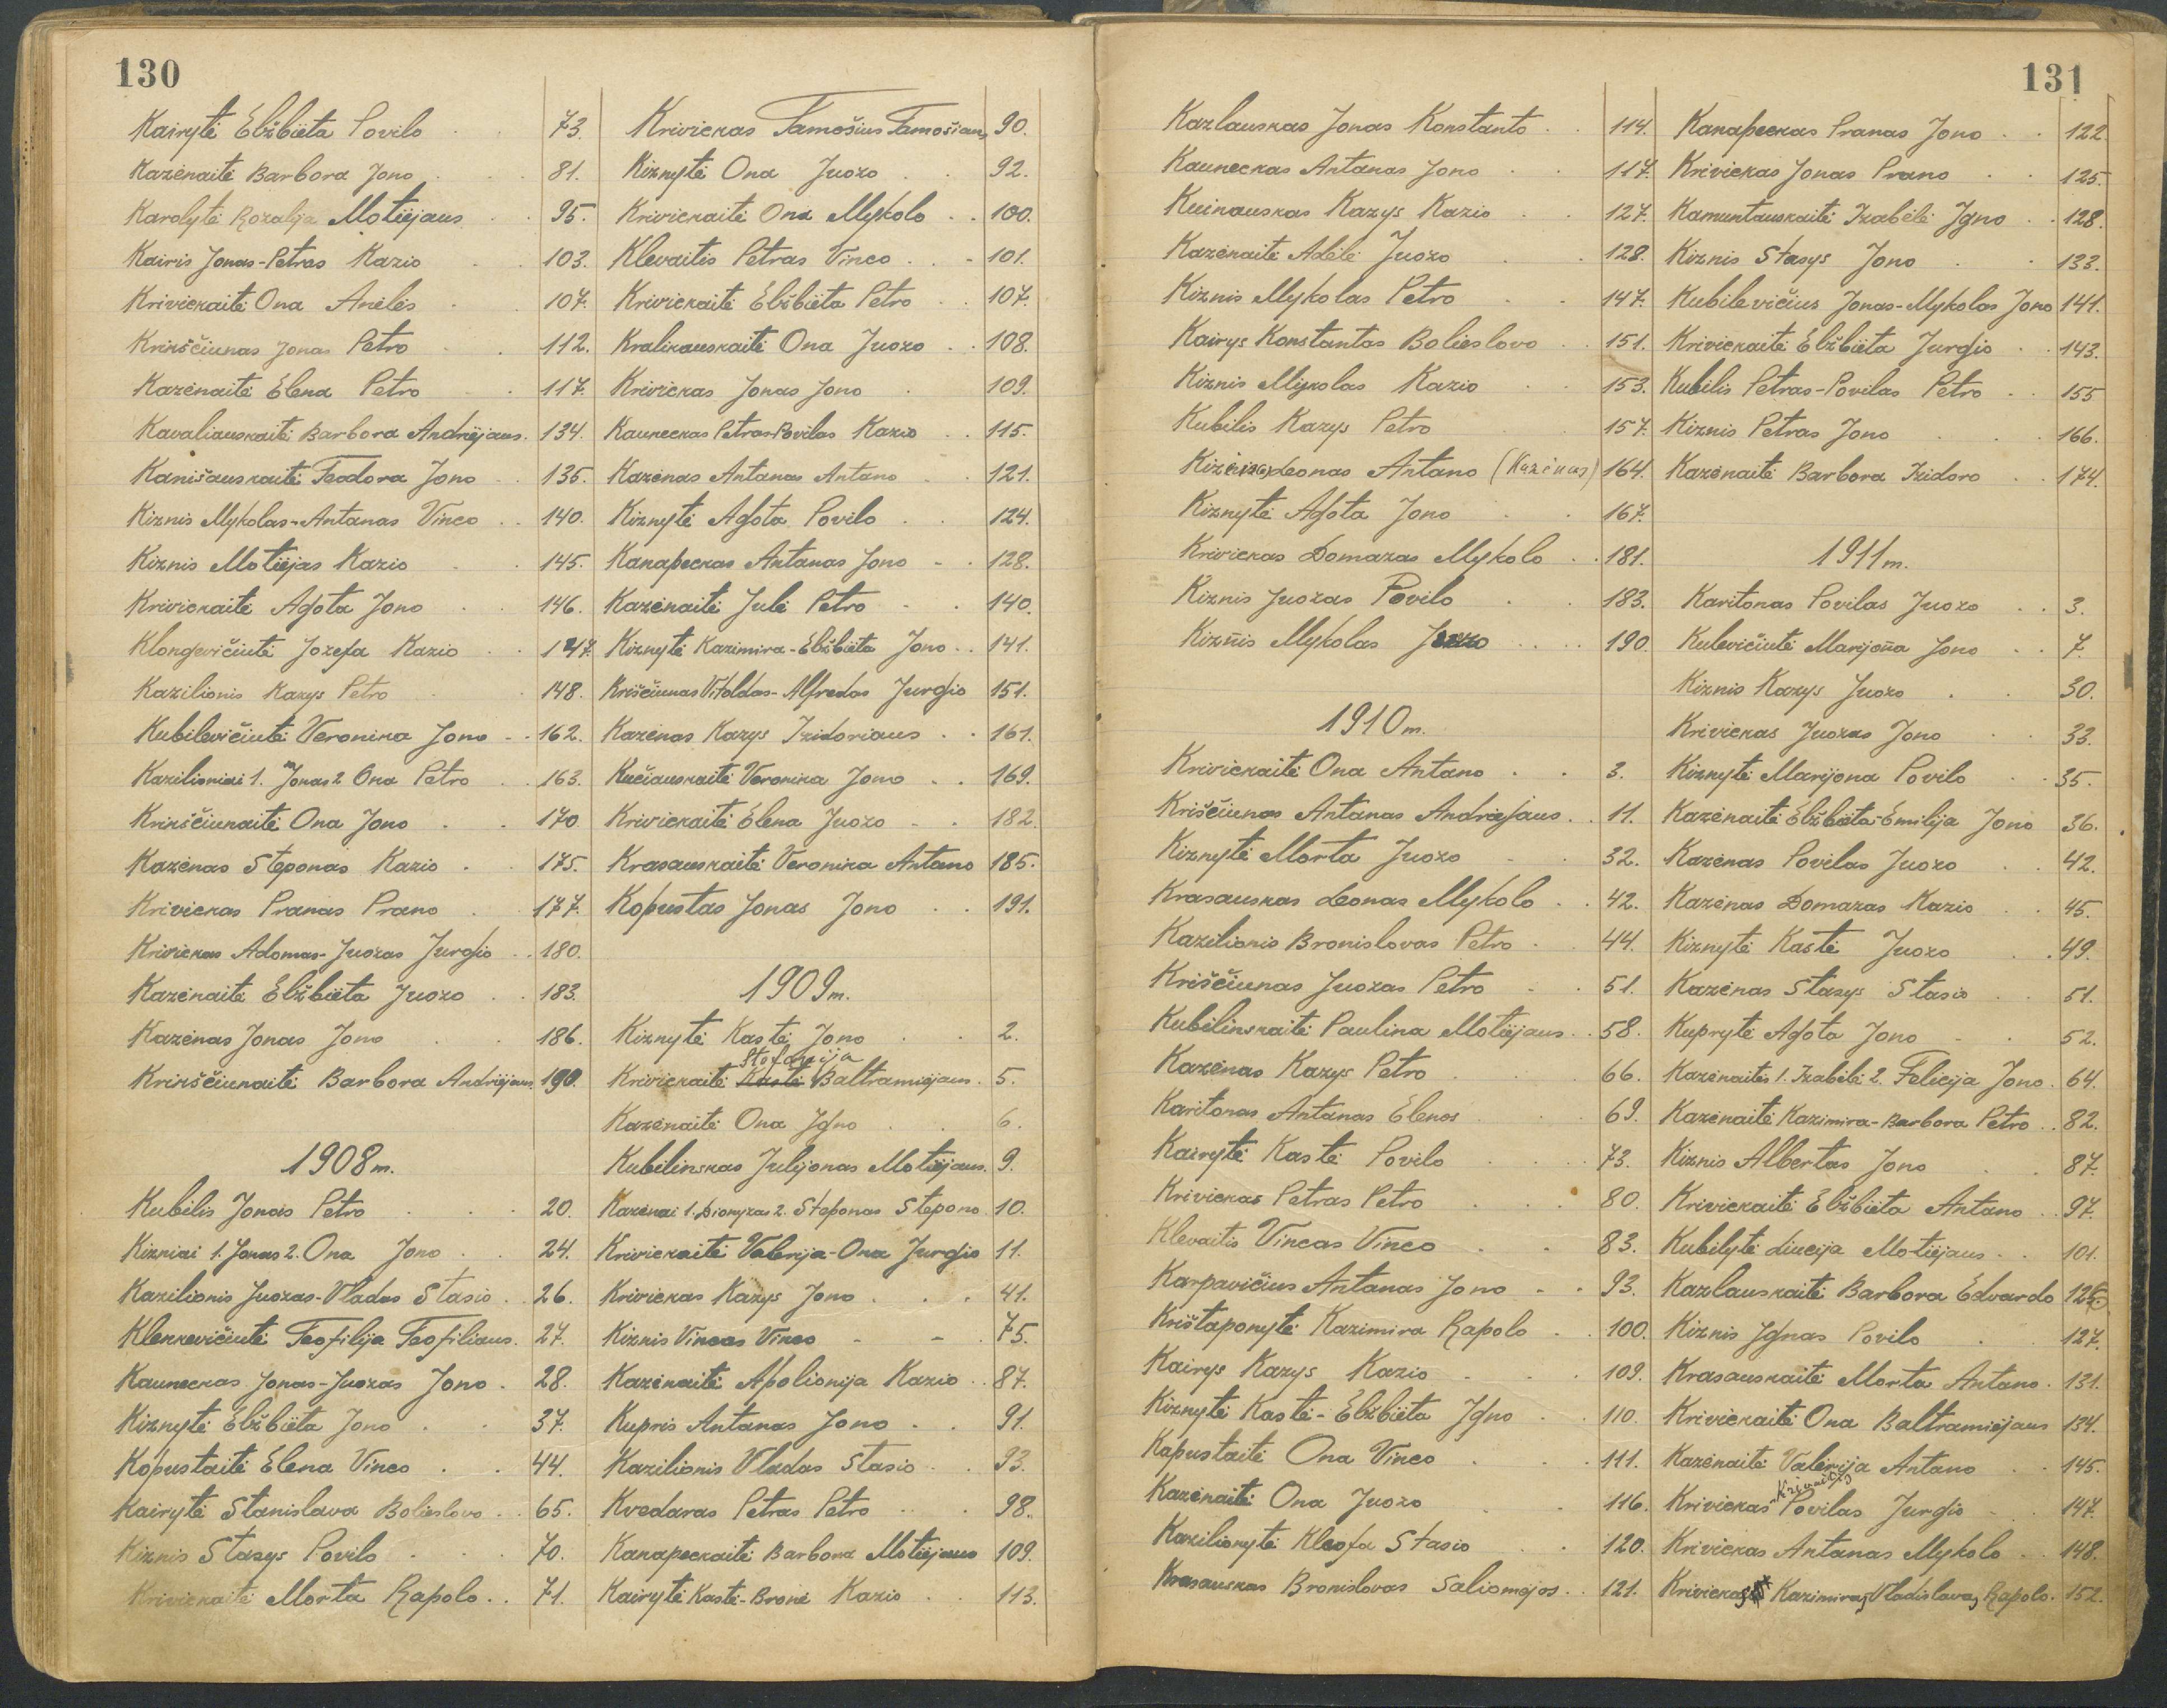 130
Kairytė Elžbieta Povilo 73.
Kazėnaitė Barbora Jono 81.
Karolytė Rozalija Motiejaus 95.
Kairis Jonas-Petras Kazio 103.
Krivickaitė Ona Anelės 107.
Krinščiunas Jonas Petro 112.
Kazėnaitė Elena Petro 117.
Kavaliauskaitė Barbora Andriejaus. 134.
Kanišauskaitė Teodora Jono 135.
Kiznis Mykolas-Antanas Vinco 140.
Kiznis Motiejas Kazio 145.
Krivickaitė Agota Jono 146.
Klongevičiutė Jozefa Kazio 147.
Kazilionis Kazys Petro 148.
Kubilevičiutė Veronika Jono 162.
Kazilioniai 1. Jonas 2 Ona Petro 163.
Krinščiunaitė Ona Jono 170
Kazėnas Steponas Kazio 175.
Krivickas Pranas Prano 177.
Krivickas Adomas-Juozas Jurgio 180.
Kazėnaitė Elžbieta Juozo 183.
Kazėnas Jonas Jono 186.
Krinščiunaitė Barbora Andriejaus. 190.
1908 m.
Kubilis Jonas Petro 20.
Kizniai 1. Jonas 2. Ona Jono 24.
Kazilionis Juozas-Vladas Stasio 26.
Klenkevičiutė Teofilija Teofiliaus. 27.
Kauneckas Jonas-Juozas Jono 28.
Kiznytė Elžbieta Jono 37.
Kopustaitė Elena Vinco 44.
Kairytė Stanislava Boleslovo 65.
Kiznis Stasys Povilo 70.
Krivickaitė Morta Rapolo 71.
Krivickas Tamošius Tamošiaus 90.
Kiznytė Ona Juozo 92.
Krivickaitė Ona Mykolo 100.
Klevaitis Petras Vinco 101.
Krivickaitė Elžbieta Petro 107.
Kralikauskaitė Ona Juozo 108.
Krivickas Jonas Jono 109.
Kauneckas Petras-Povilas Kazio 115.
Kazėnas Antanas Antano 121.
Kiznytė Agota Povilo 124.
Kanapeckas Antanas Jono 128.
Kazėnaitė Julė Petro 140.
Kiznytė Kazimira-Elžbieta Jono 141.
Kriščiunas Vitoldas-Alfredas Jurgio 151.
Kazėnas Kazys Izidoriaus 161.
Kučiauskaitė Veronika Jono 169.
Krivickaitė Elena Juozo 182.
Krasauskaitė Veronika Antano 185.
Kopustas Jonas Jono 191.
1909 m.
Kiznytė Kastė Jono 2.
Stefanija
Krivickaitė Kastė Baltramiejaus. 5.
Kazėnaitė Ona Igno 6.
Kubilinskas Julijonas Motiejaus. 9.
Kazėnai 1. Dionyzas 2. Steponas Stepono. 10.
Krivickaitė Valerija-Ona Jurgio 11.
Krivickas Kazys Jono 41.
Kiznis Vincas Vinco 75.
Kazėnaitė Apolionija Kazio 87.
Kupris Antanas Jono 91.
Kazilionis Vladas Stasio 93.
Kvedaras Petras Petro 98.
Kanapeckaitė Barbora Motiejaus 109.
Kairytė Kastė-Bronė Kazio 113.
131
Kazlauskas Jonas Konstanto 114.
Kauneckas Antanas Jono 117.
Kuinauskas Kazys Kazio 127.
Kazėnaitė Adelė Juozo 128.
Kiznis Mykolas Petro 147.
Kairys Konstantas Bolieslovo 151.
Kiznis Mykolas Kazio 153.
Kubilis Kazys Petro 157.
Leonas Antano (Kazėnas) 164.
Kiznytė Agota Jono 167.
Krivickas Domazas Mykolo 181.
Kiznis Juozas Povilo 183.
Kiznis Mykolas 190
1910 m.
Krivickaitė Ona Antano 3.
Kriščiunas Antanas Andriejaus 11.
Kiznytė Morta Juozo 32.
Krasauskas Leonas Mykolo 42.
Kazilionis Bronislovas Petro 44.
Kriščiunas Juozas Petro 51.
Kubilinskaitė Paulina Motiejaus 58.
Kazėnas Kazys Petro 66.
Karitonas Antanas Elenos 69.
Kairytė Kastė Povilo 73.
Krivickas Petras Petro 80.
Klevaitis Vincas Vinco 83.
Karpavičius Antanas Jono 93.
Krištaponytė Kazimira Rapolo 100.
Kairys Kazys Kazio 109.
Kiznytė Kastė-Elžbieta Igno 110.
Kapustaitė Ona Vinco 111.
Kazėnaitė Ona Juozo 116.
Kazilionytė Kleofa Stasio 120.
Krasauskas Bronislovas Saliomėjos 121.
Kanapeckas Pranas Jono 122.
Krivickas Jonas Prano 125.
Kamuntauskaitė Izabėlė Igno 128.
Kiznis Stasys Jono 133.
Kubilevičius Jonas-Mykolas Jono 141.
Krivickaitė Elžbieta Jurgio 143.
Kubilis Petras-Povilas Petro 155
Kiznis Petras Jono 166.
Kazėnaitė Barbora Izidoro 174.
1911 m.
Karitonas Povilas Juozo 3.
Kulevičiutė Marijona Jono 7.
Kiznis Kazys Juozo 30.
Krivickas Juozas Jono 33.
Kiznytė Marijona Povilo 35.
Kazėnaitė Elžbieta-Emilija Jono 36.
Kazėnas Povilas Juozo 42.
Kazėnas Domazas Kazio 45.
Kiznytė Kastė Juozo 49.
Kazėnas Stasys Stasio 51.
Kuprytė Agota Jono 52.
Kazėnaitės 1. Izabėlė 2. Felicija Jono. 64.
Kazėnaitė Kazimira-Barbora Petro 82.
Kiznis Albertas Jono 87.
Krivickaitė Elžbieta Antano 97.
Kubilytė Liucija Motiejaus 101.
Kazlauskaitė Barbora Edvardo 126.
Kiznis Ignas Povilo 127.
Krasauskaitė Morta Antano 131.
Krivickaitė Ona Baltramiejaus 134.
Kazėnaitė Valerija Antano 145.
Krivickas Povilas Jurgio 147.
Krivickas Antanas Mykolo 148.
Krivickas Kazimiras Vladislavas Rapolo. 152.